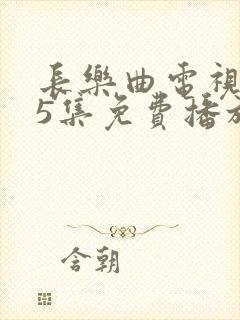 長樂曲電視
5集免費播放
含朝